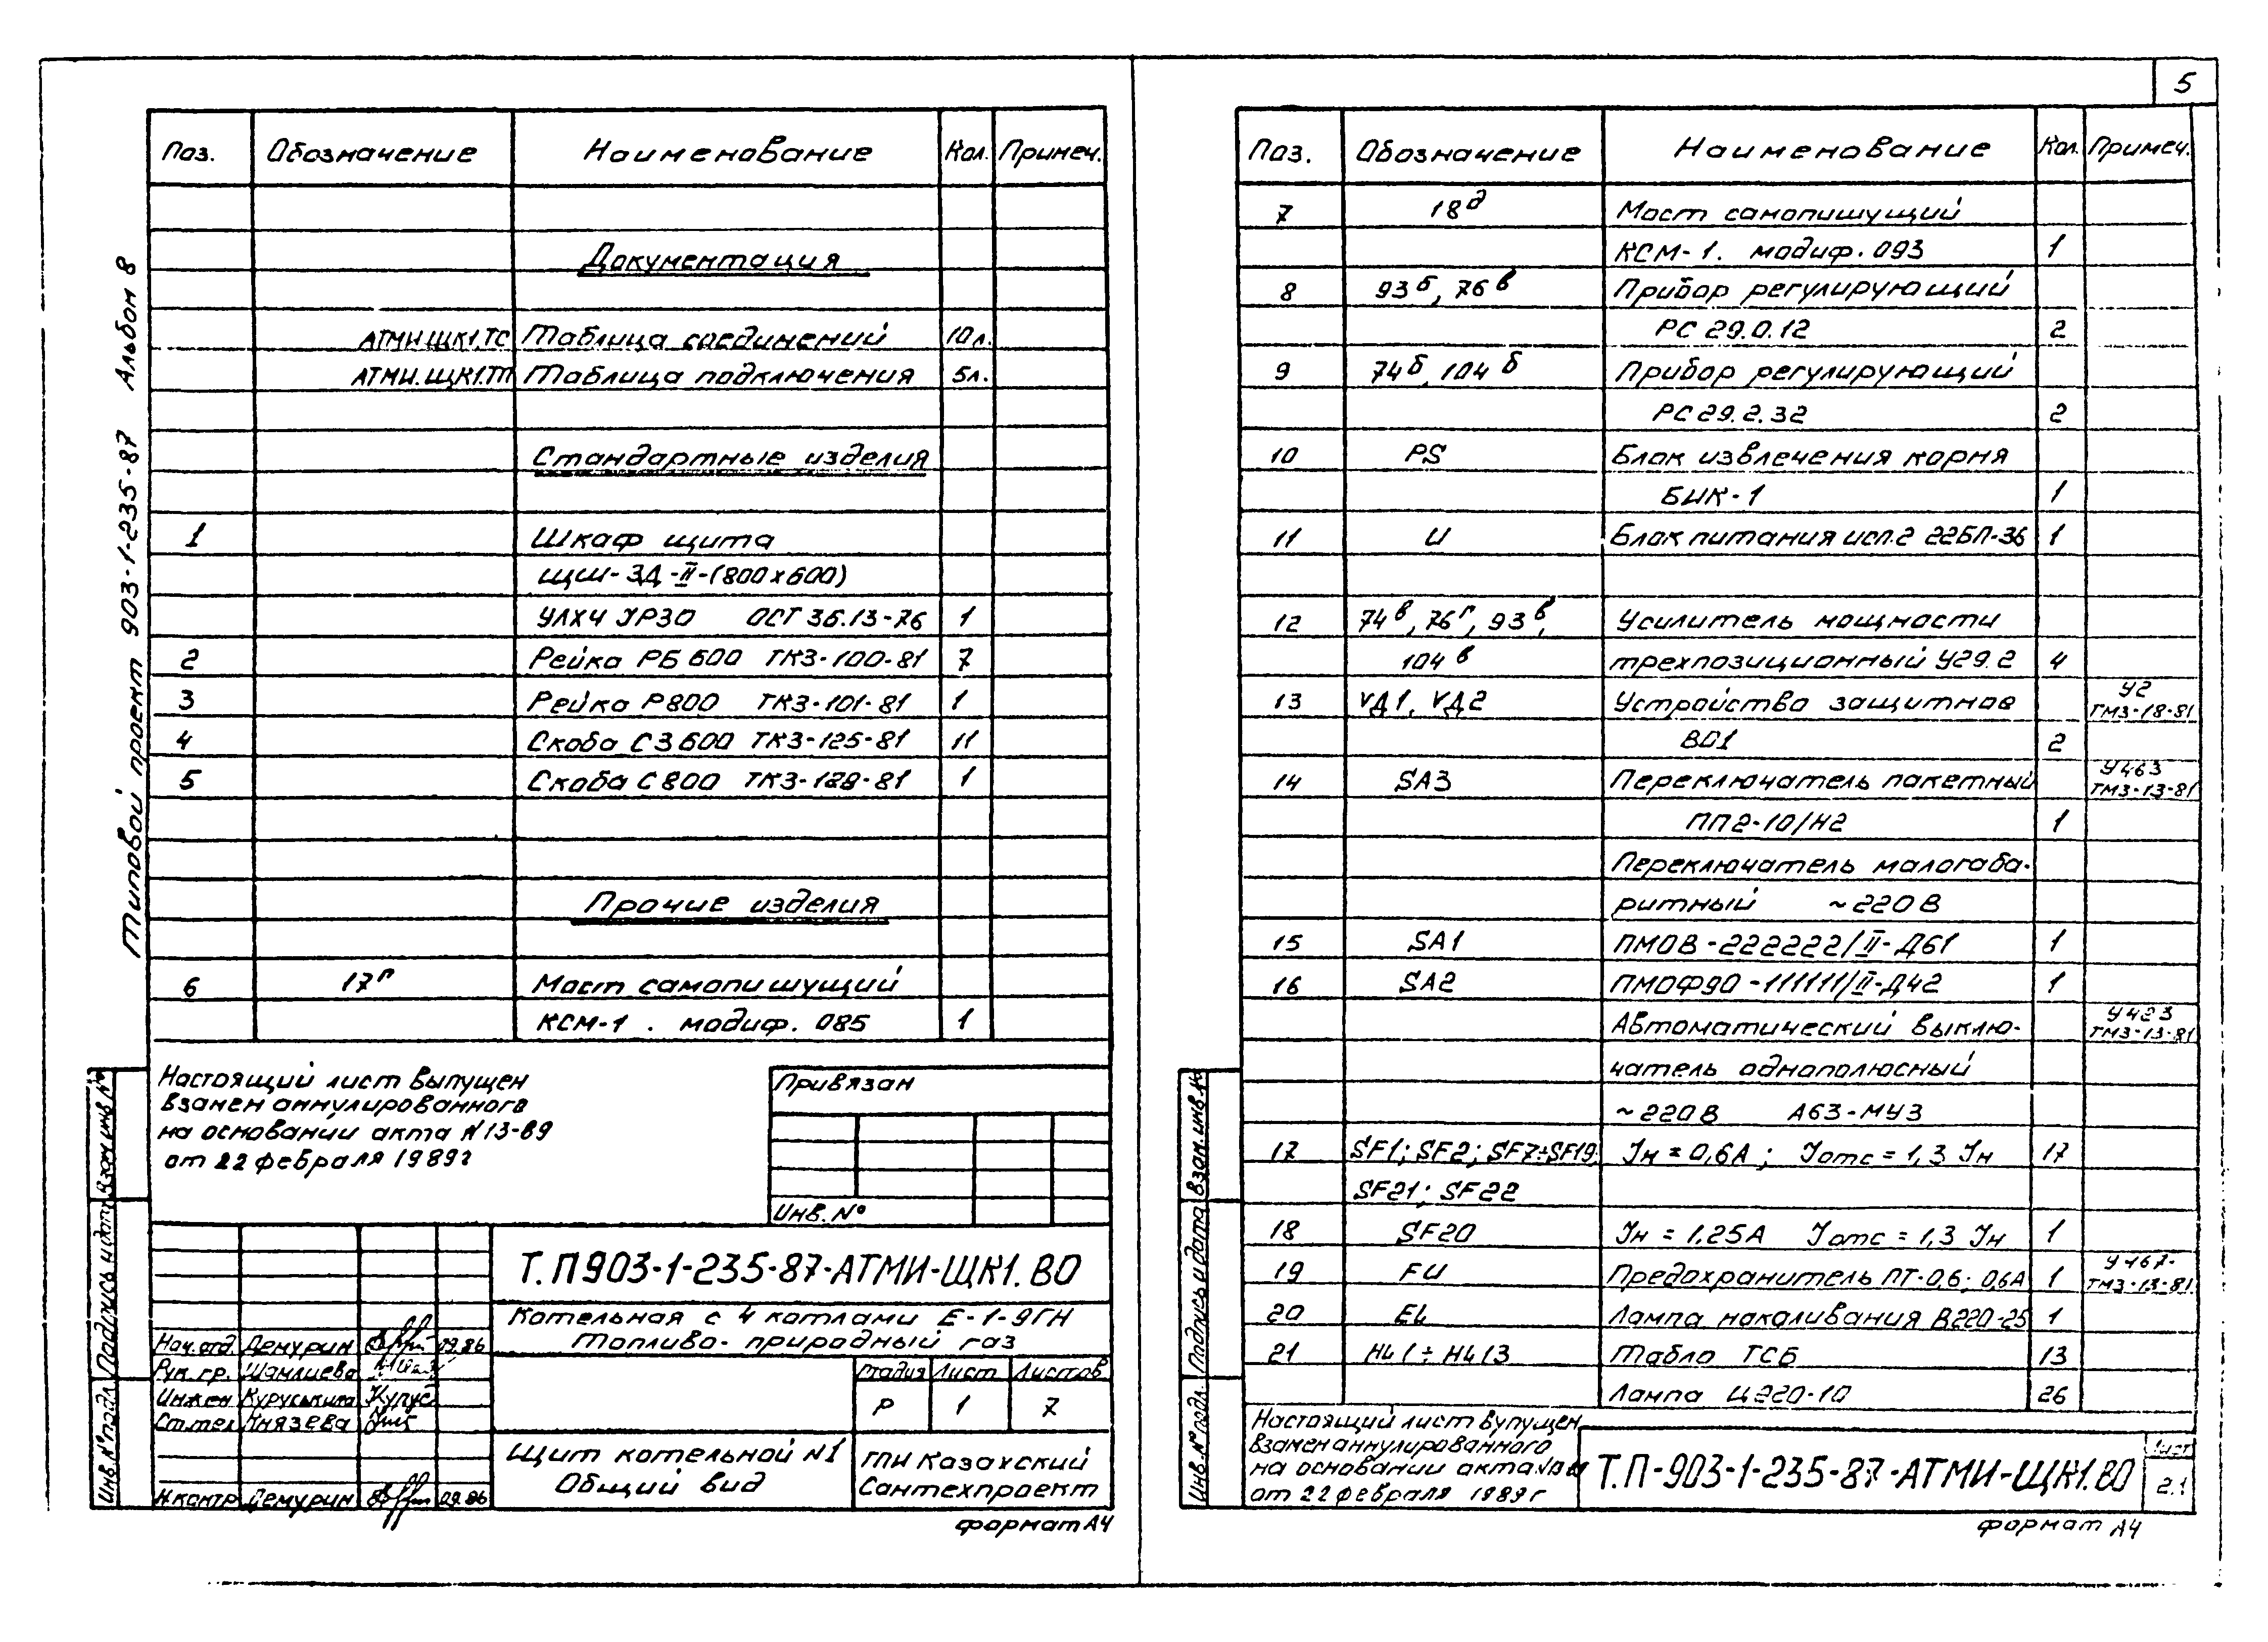 5
Типовой проект 903-1-235-87 Альбом 8
Поз. Обозначение Наименование Кол. Примеч.
Документация
АТМИ.ЩК1.ТС Таблица соединений 10л.
АТМИ.ЩК1.ТП Таблица подключения 5л.
Стандартные изделия
1 Шкаф щита
ЩШ-ЗД-II-(800х600)
УЛХЧ IP30 ОСТ 36.13-76 1
2 Рейка РБ 600 ТК3-100-81 7
3 Рейка Р800 ТК3-101-81 1
4 Скоба С3 600 ТК3-125-81 11
5 Скоба С800 ТК3-129-81 1
Прочие изделия
6 17г Мост самопишущий
КСМ-1. модиф. 085 1
Настоящий лист выпущен
взамен аннулированного
на основании акта N13-89
от 22 февраля 1989г
Привязан
Инв. №
Т.П 903-1-235-87-АТМИ-ЩК1.ВО
Котельная с 4 котлами Е-1-9ГН
Топливо- природный газ
Нач.отд. Демурин 09.86
Рук. гр. Шамлиева
Инжен Курускина
Ст.тех Князева
Н.контр Демурин 09.86
Стадия Лист Листов
Р 1 7
Щит котельной N1
Общий вид
ГПИ Казахский
Сантехпроект
Взам инв №
Подпись и дата
Инв. № подл.
формат А4
Поз. Обозначение Наименование Кол. Примеч.
7 18д Мост самопишущий
КСМ-1. модиф. 093 1
8 93б, 76в Прибор регулирующий
РС 29.0.12 2
9 74б, 104б Прибор регулирующий
РС 29.2.32 2
10 PS Блок извлечения корня
БИК-1 1
11 U Блок питания исп.2 22БП-36 1
12 74в, 76г, 93в, Усилитель мощности
104в трехпозиционный У29.2 4
13 VД1, VД2 Устройство защитное У2 ТМ3-18-81
ВО1 2
14 SA3 Переключатель пакетный У463 ТМ3-13-81
ПП2-10/Н2 1
Переключатель малогаба-
ритный ~220В
15 SA1 ПМОВ-222222/II-Д61 1
16 SA2 ПМОФ90-111111/II-Д42 1
Автоматический выклю- У423 ТМ3-13-81
чатель однополюсный
~220В А63-МУ3
17 SF1; SF2; SF7÷SF19; Iн = 0,6А; Iотс = 1,3 Iн 17
SF21; SF22
18 SF20 Iн = 1,25А Iотс = 1,3 Iн 1
19 FU Предохранитель ПТ-0,6; 0,6А 1 У467- ТМ3-13-81
20 EL Лампа накаливания В220-25 1
21 HL1÷HL13 Табло ТСБ 13
Лампа Ц220-10 26
Настоящий лист выпущен
взамен аннулированного
на основании акта
от 22 февраля 1989г
Т.П-903-1-235-87-АТМИ-ЩК1.ВО
Лист
2.1
Взам. инв. №
Подпись и дата
Инв. № подл.
формат А4